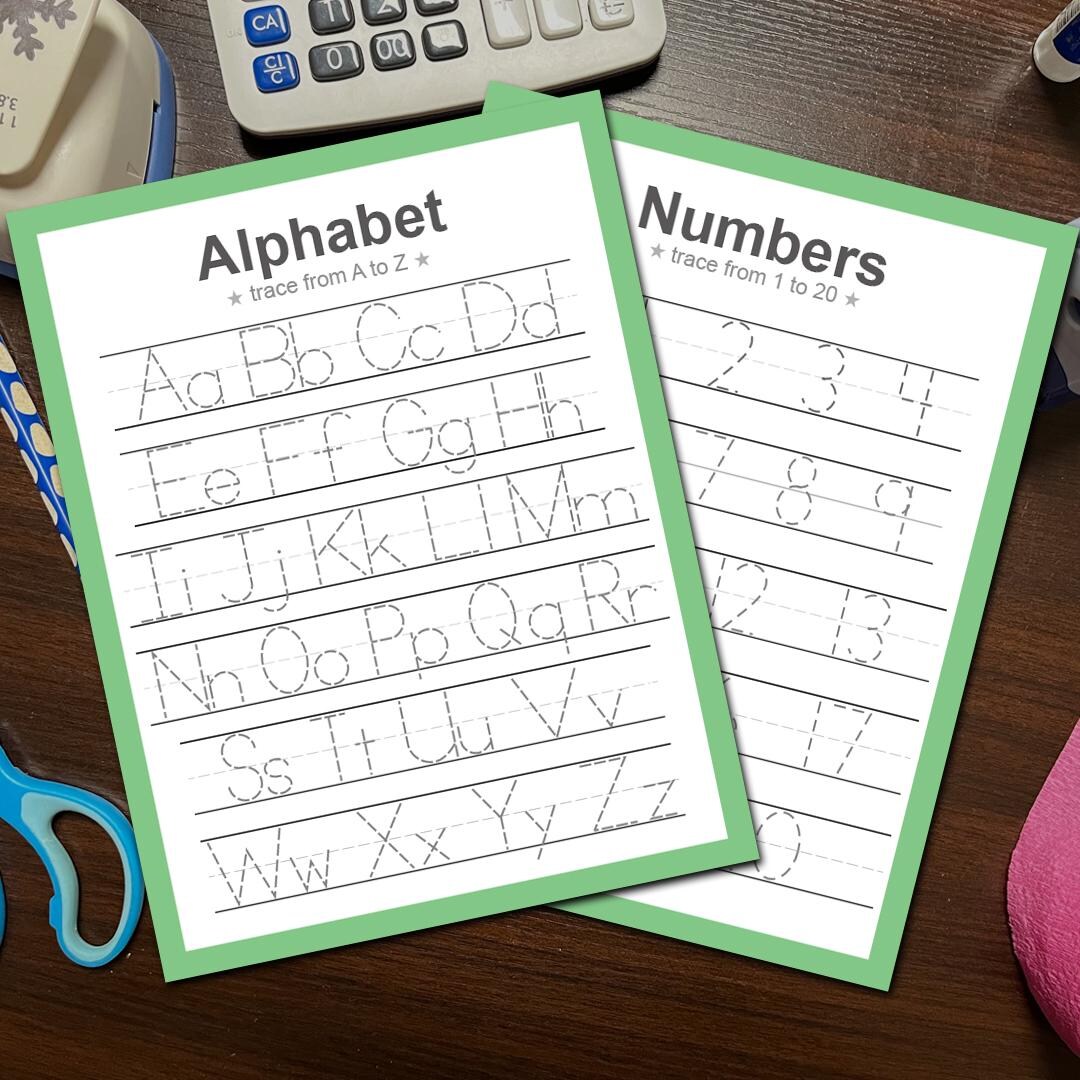 CA
CI/C
0
00
Alphabet
★ trace from A to Z ★
Aa Bb Cc Dd
Ee Ff Gg Hh
Ii Jj Kk Ll Mm
Nn Oo Pp Qq Rr
Ss Tt Uu Vv
Ww Xx Yy Zz
Numbers
★ trace from 1 to 20 ★
2 3 4
7 8 9
12 13
17